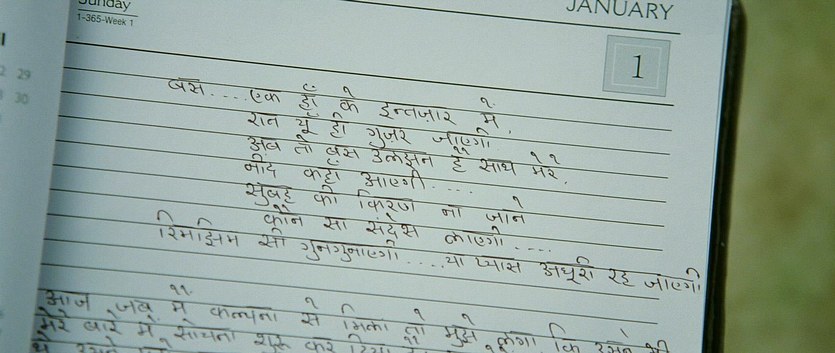 Sunday
1-365-Week 1
JANUARY
1
29
30
बस.... एक हाँ के इन्तजार में,
रात यूं ही गुजर जाएगी
अब तो बस उलझन है साथ मेरे,
नींद कहाँ आएगी....
सुबह की किरण ना जाने
कौन सा संदेस लाएगी....
रिमझिम सी गुनगुनाएगी.... या प्यास अधूरी रह जाएगी
आज जब मैं कल्पना से मिला तो मुझे लगा कि उसने भी
मेरे बारे में सोचना शुरू कर दिया है